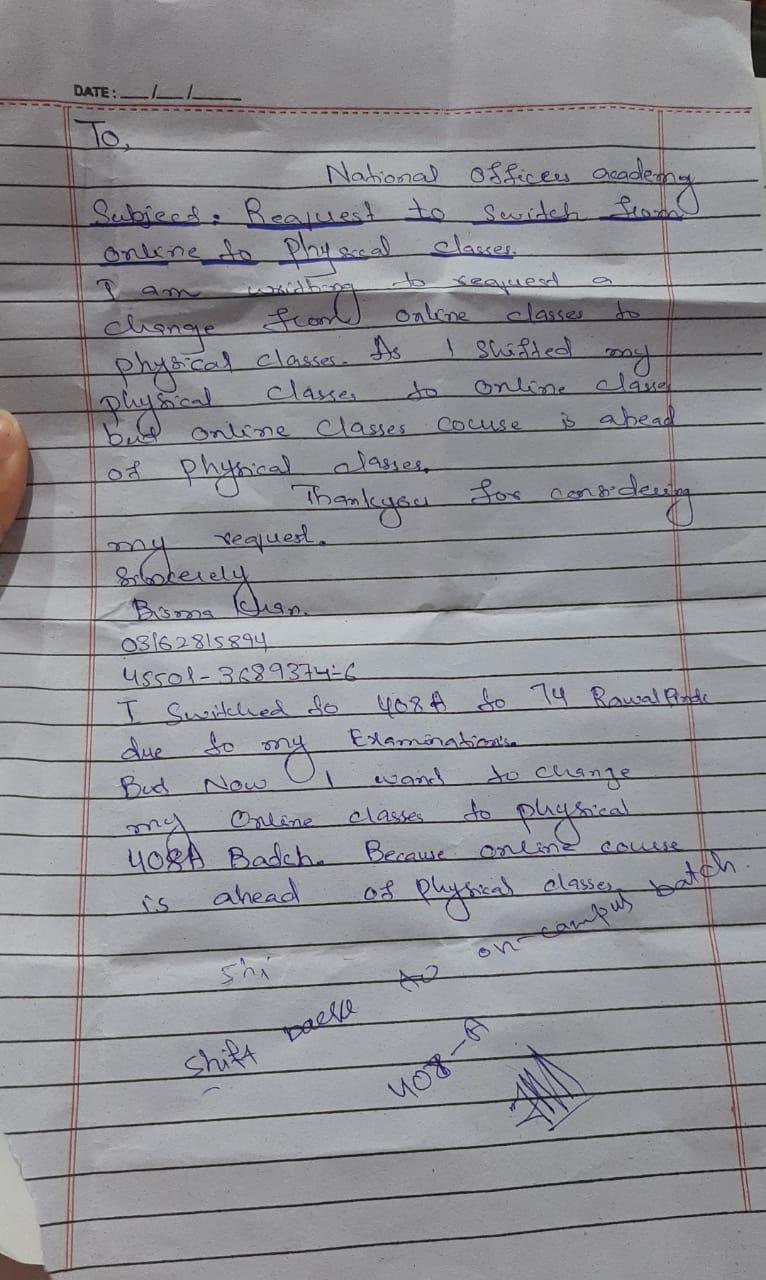 DATE: __/__/____
To,
National Officers academy
Subject: Request to switch from
online to Physical classes.
I am writing to request a
change from online classes to
physical classes. As I shifted my
physical classes to online classes
but online classes course is ahead
of physical classes.
Thankyou for considering
my request.
Sincerely
Bisma Khan.
03162815894
45501-3689374-6
I Switched to 408A to 74 Rawalpindi
due to my Examinations.
But Now I want to change
my Online classes to physical
408A Batch. Because online course
is ahead of physical classes.
shi
shift to on-campus batch.
408-A